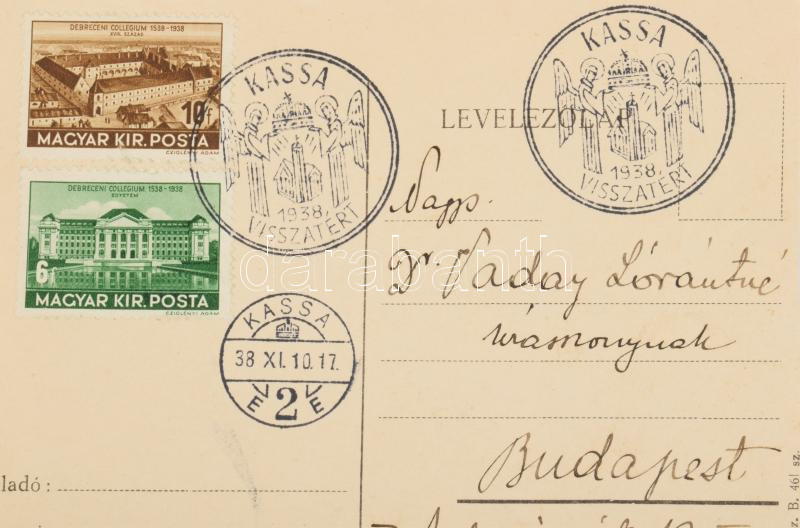 DEBRECENI COLLEGIUM 1538-1938
XVIII. SZÁZAD
10f
MAGYAR KIR. POSTA
EZIGLÉNYI ÁDÁM
DEBRECENI COLLEGIUM 1538-1938
EGYETEM
6f
MAGYAR KIR. POSTA
EZIGLÉNYI ÁDÁM
KASSA
1938
VISSZATÉRT
KASSA
1938
VISSZATÉRT
KASSA
38 XI. 10. 17.
2
LEVELEZŐLAP
Nags.
Dr. Vaday Lórántné
úrasszonynak
Budapest
ladó:
z. B. 461 sz.
darabanth